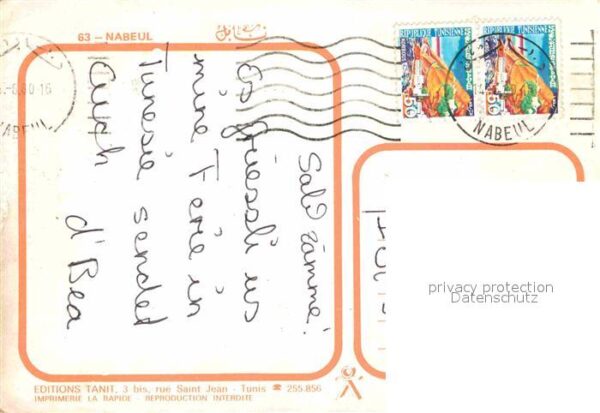 63 – NABEUL
نابل
REPUBLIQUE TUNISIENNE
REPUBLIQUE TUNISIENNE
NABEUL
NABEUL
Salü zämme!
Es Grüessli us
mine Ferie in
Tunesie sendet
Euch
d'Bea
privacy protection
Datenschutz
EDITIONS TANIT, 3 bis, rue Saint Jean - Tunis ☎ 255.856
IMPRIMERIE LA RAPIDE - REPRODUCTION INTERDITE